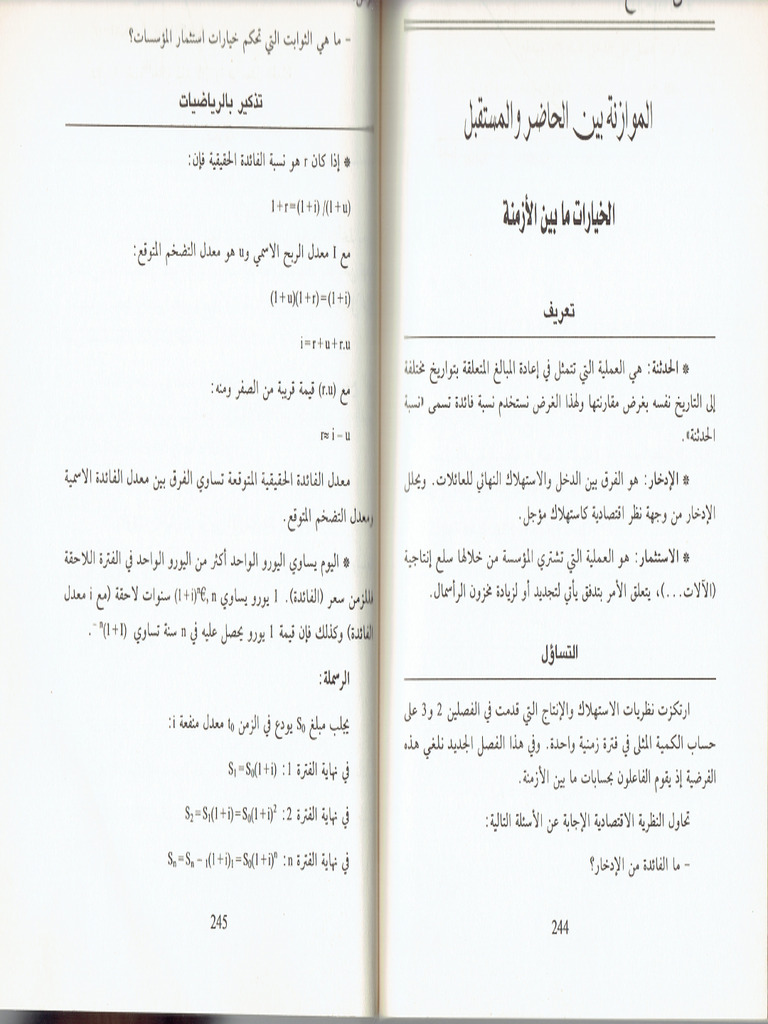 الموازنة بين الحاضر والمستقبل
الخيارات ما بين الأزمنة
تعريف
* الحدثنة: هي العملية التي تتمثل في إعادة المبالغ المتعلقة بتواريخ مختلفة
إلى التاريخ نفسه بغرض مقارنتها ولهذا الغرض نستخدم نسبة فائدة تسمى «نسبة
الحدثنة».
* الإدخار: هو الفرق بين الدخل والاستهلاك النهائي للعائلات. ويحلل
الإدخار من وجهة نظر اقتصادية كاستهلاك مؤجل.
* الاستثمار: هو العملية التي تشتري المؤسسة من خلالها سلع إنتاجية
(الآلات...)، يتعلق الأمر بتدفق يأتي لتجديد أو لزيادة مخزون الرأسمال.
التساؤل
ارتكزت نظريات الاستهلاك والإنتاج التي قدمت في الفصلين 2 و3 على
حساب الكمية المثل في فترة زمنية واحدة. وفي هذا الفصل الجديد نلغي هذه
الفرضية إذ يقوم الفاعلون بحسابات ما بين الأزمنة.
تحاول النظرية الاقتصادية الإجابة عن الأسئلة التالية:
- ما الفائدة من الإدخار؟
244
- ما هي الثوابت التي تحكم خيارات استثمار المؤسسات؟
تذكير بالرياضيات
* إذا كان r هو نسبة الفائدة الحقيقية فإن:
1+r=(1+i) /(1+u)
مع I معدل الربح الاسمي وu هو معدل التضخم المتوقع:
(1+u)(1+r)=(1+i)
i=r+u+r.u
مع (r.u) قيمة قريبة من الصفر ومنه:
r≈ i – u
معدل الفائدة الحقيقية المتوقعة تساوي الفرق بين معدل الفائدة الاسمية
ومعدل التضخم المتوقع.
* اليوم يساوي اليورو الواحد أكثر من اليورو الواحد في الفترة اللاحقة
فللزمن سعر (الفائدة). 1 يورو يساوي (1+i)ⁿ€, n سنوات لاحقة (مع i معدل
الفائدة) وكذلك فإن قيمة 1 يورو يحصل عليه في n سنة تساوي (1+I)⁻ⁿ.
الرسملة:
يجلب مبلغ S₀ يودع في الزمن t₀ معدل منفعة i:
في نهاية الفترة 1: S₁=S₀(1+i)
في نهاية الفترة 2: S₂=S₁(1+i)=S₀(1+i)²
في نهاية الفترة n: Sₙ=Sₙ₋₁(1+i)₁=S₀(1+i)ⁿ
245